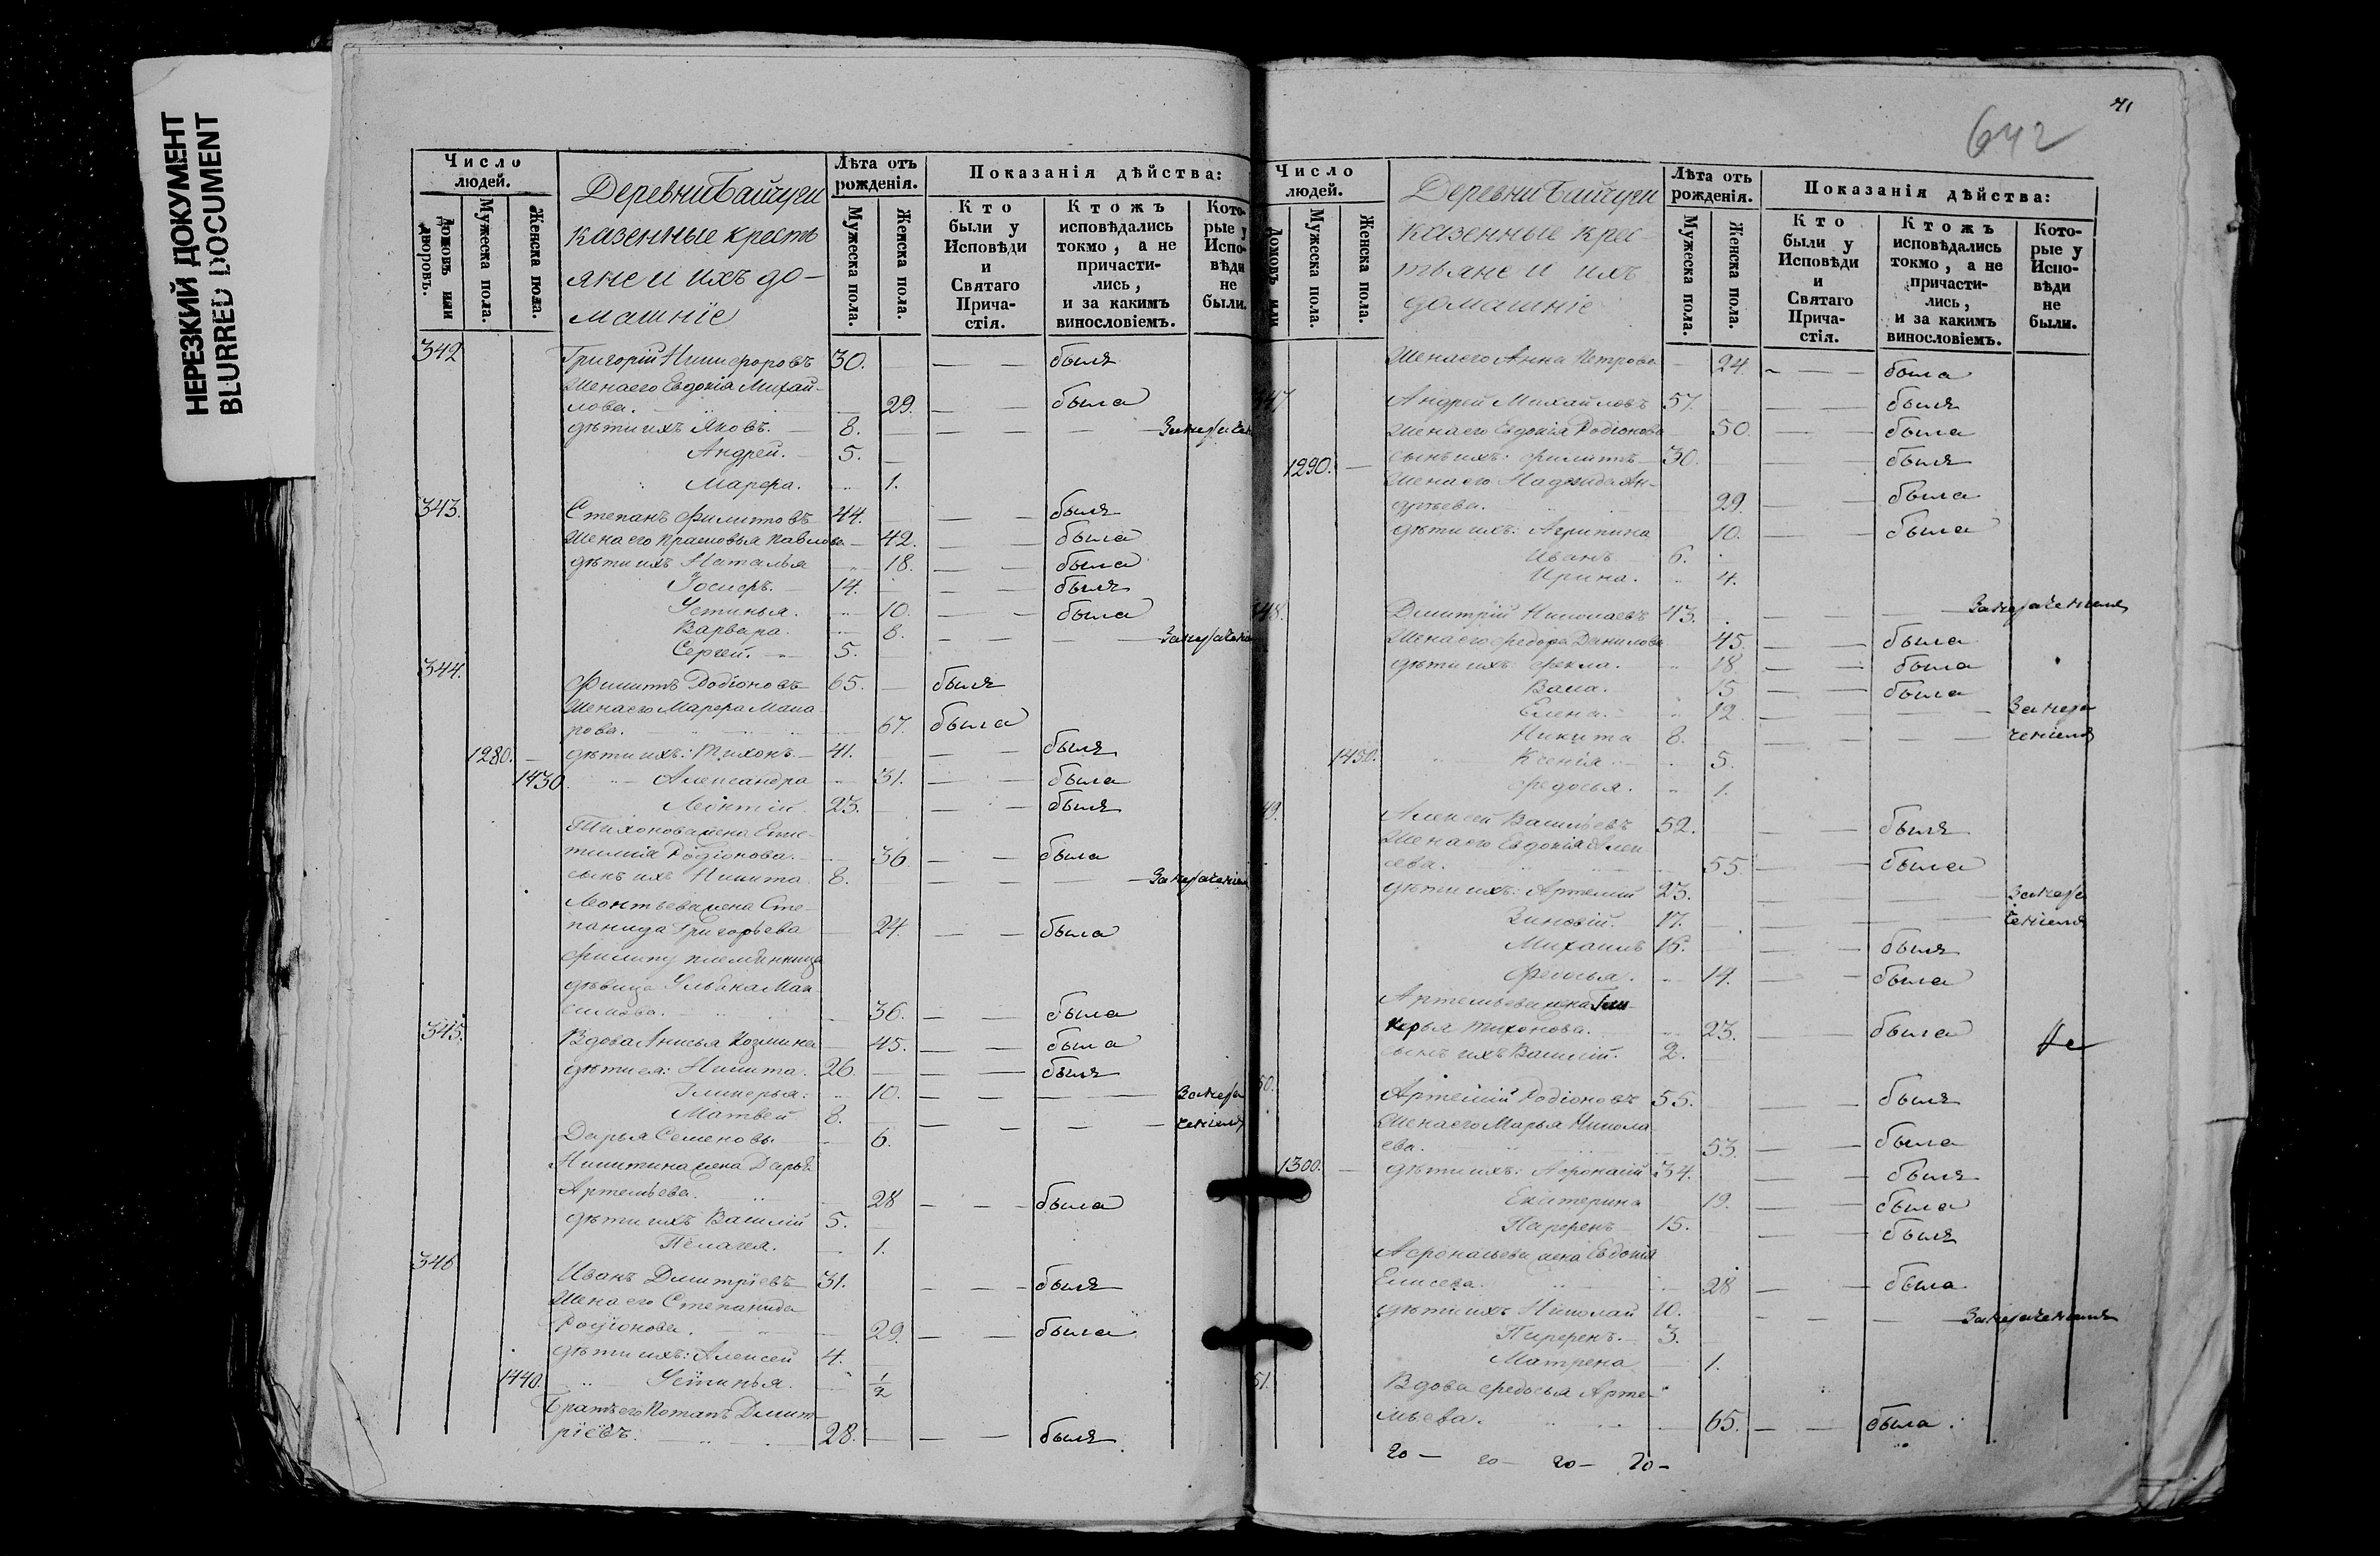 НЕРЕЗКИЙ ДОКУМЕНТ
BLURRED DOCUMENT
Число людей.
Домовъ или дворовъ.
Мужеска пола.
Женска пола.
Деревни Байчуги
казенные кресть
яне и ихъ до-
машніе
Лѣта отъ рожденія.
Мужеска пола.
Женска пола.
Показанія дѣйства:
Кто были у Исповѣди и Святаго Прича-стія.
Ктожъ исповѣдались токмо, а не причасти-лись, и за какимъ винословіемъ.
Кото-рые у Испо-вѣди не были.
342 Григорій Никифоровъ 30. — — былъ
Жена его Евдокія Михай-
лова. 29. — — была
дѣти ихъ Яковъ. — 8. — — —
Андрей. 5. —
Марфа. 1.
343. Степанъ Филиповъ 44. — — былъ
Жена его Прасковья Павлова — 42. — — была
дѣти ихъ Наталья 18. — — была
Іосифъ. 14. — — былъ
Устинья. 10. — — была
Варвара. 8. — — —
Сергей. 5.
344. Филипъ Родіоновъ 65. — былъ
Жена его Марфа Мака
рова. 67. была
1280. — дѣти ихъ: Тихонъ — 41. — — былъ
1430 Александра 31. — — была
Леонтій 23. — — былъ
Тихонова жена Епис-
тимія Родіонова. 36 — — была
сынъ ихъ Никита 8. — — —
Леонтьева жена Сте-
панида Григорьева — 24. — — была
Филипу племянница
дѣвица Ульяна Мак
симова. 36. — — была
345. Вдова Анисья Козмина 45. — — была
дѣти ея: Никита. 26. — — былъ
Гликерья: 10. — — — —
Матвей 8.
Дарья Семеновы — 6. — — — —
Никитина жена Дарья
Артемьева. 28 — — была
дѣти ихъ Василій 5. —
Пелагея. 1.
346 Иванъ Дмитріевъ 31. — — былъ
Жена его Степанида
Родіонова. 29. — — была
дѣти ихъ: Алексей 4.
1440. Устинья. 1/2
Братъ его Потапъ Дмит-
ріевъ. 28. — — былъ
71
642
Число людей.
Домовъ или
Мужеска пола.
Женска пола.
Деревни Байчуги
казенные крес-
тьяне и ихъ
домашніе
Лѣта отъ рожденія.
Мужеска пола.
Женска пола.
Показанія дѣйства:
Кто были у Исповѣди и Святаго Прича-стія.
Ктожъ исповѣдались токмо, а не причасти-лись, и за какимъ винословіемъ.
Кото-рые у Испо-вѣди не были.
Жена его Анна Петрова — 24. — — была
47 Андрей Михайловъ 57. — — былъ
Жена его Евдокія Родіонова 50. — — была
1290. — сынъ ихъ: Филипъ 30. — былъ
Жена его Надежда Ан-
дреева. 29. — — была
дѣти ихъ: Агрипина 10. — — была
Иванъ 6.
Ирина. 4.
48. Дмитрій Николаевъ 43. — — —
Жена его Федора Данилова 45. — — была
дѣти ихъ Фекла. 18 — — была
Васа. 15 — — была
Елена. 12. — — —
Никита 8. — — —
1450. Ксенія 5.
Федосья. 1.
49. Алексей Васильевъ 52. — — былъ
Жена его Евдокія Алек
сева. 55 — — была
дѣти ихъ: Артемій 23. — — —
Зиновій. 17. — — —
Михаилъ 16. — — былъ
Федосья. 14. — — была
Артемьева жена Гли
керья Тихонова. 23. — — была
сынъ ихъ Василій. 2.
50. Артемій Родіоновъ 55. — — былъ
Жена его Марья Никола
ева. 53. — — была
1300. — дѣти ихъ: Афонасій 34. — — былъ
Екатерина 19. — — была
Парфенъ 15. — — былъ
Афонасьева жена Евдокія
Елисева. 28 — — была
дѣти ихъ Николай 10. — — —
Парфенъ. 3.
Матрена 1.
51. Вдова Федосья Арте-
мьева. — 65. — — была.
20 — 20 — 20 — 20 —